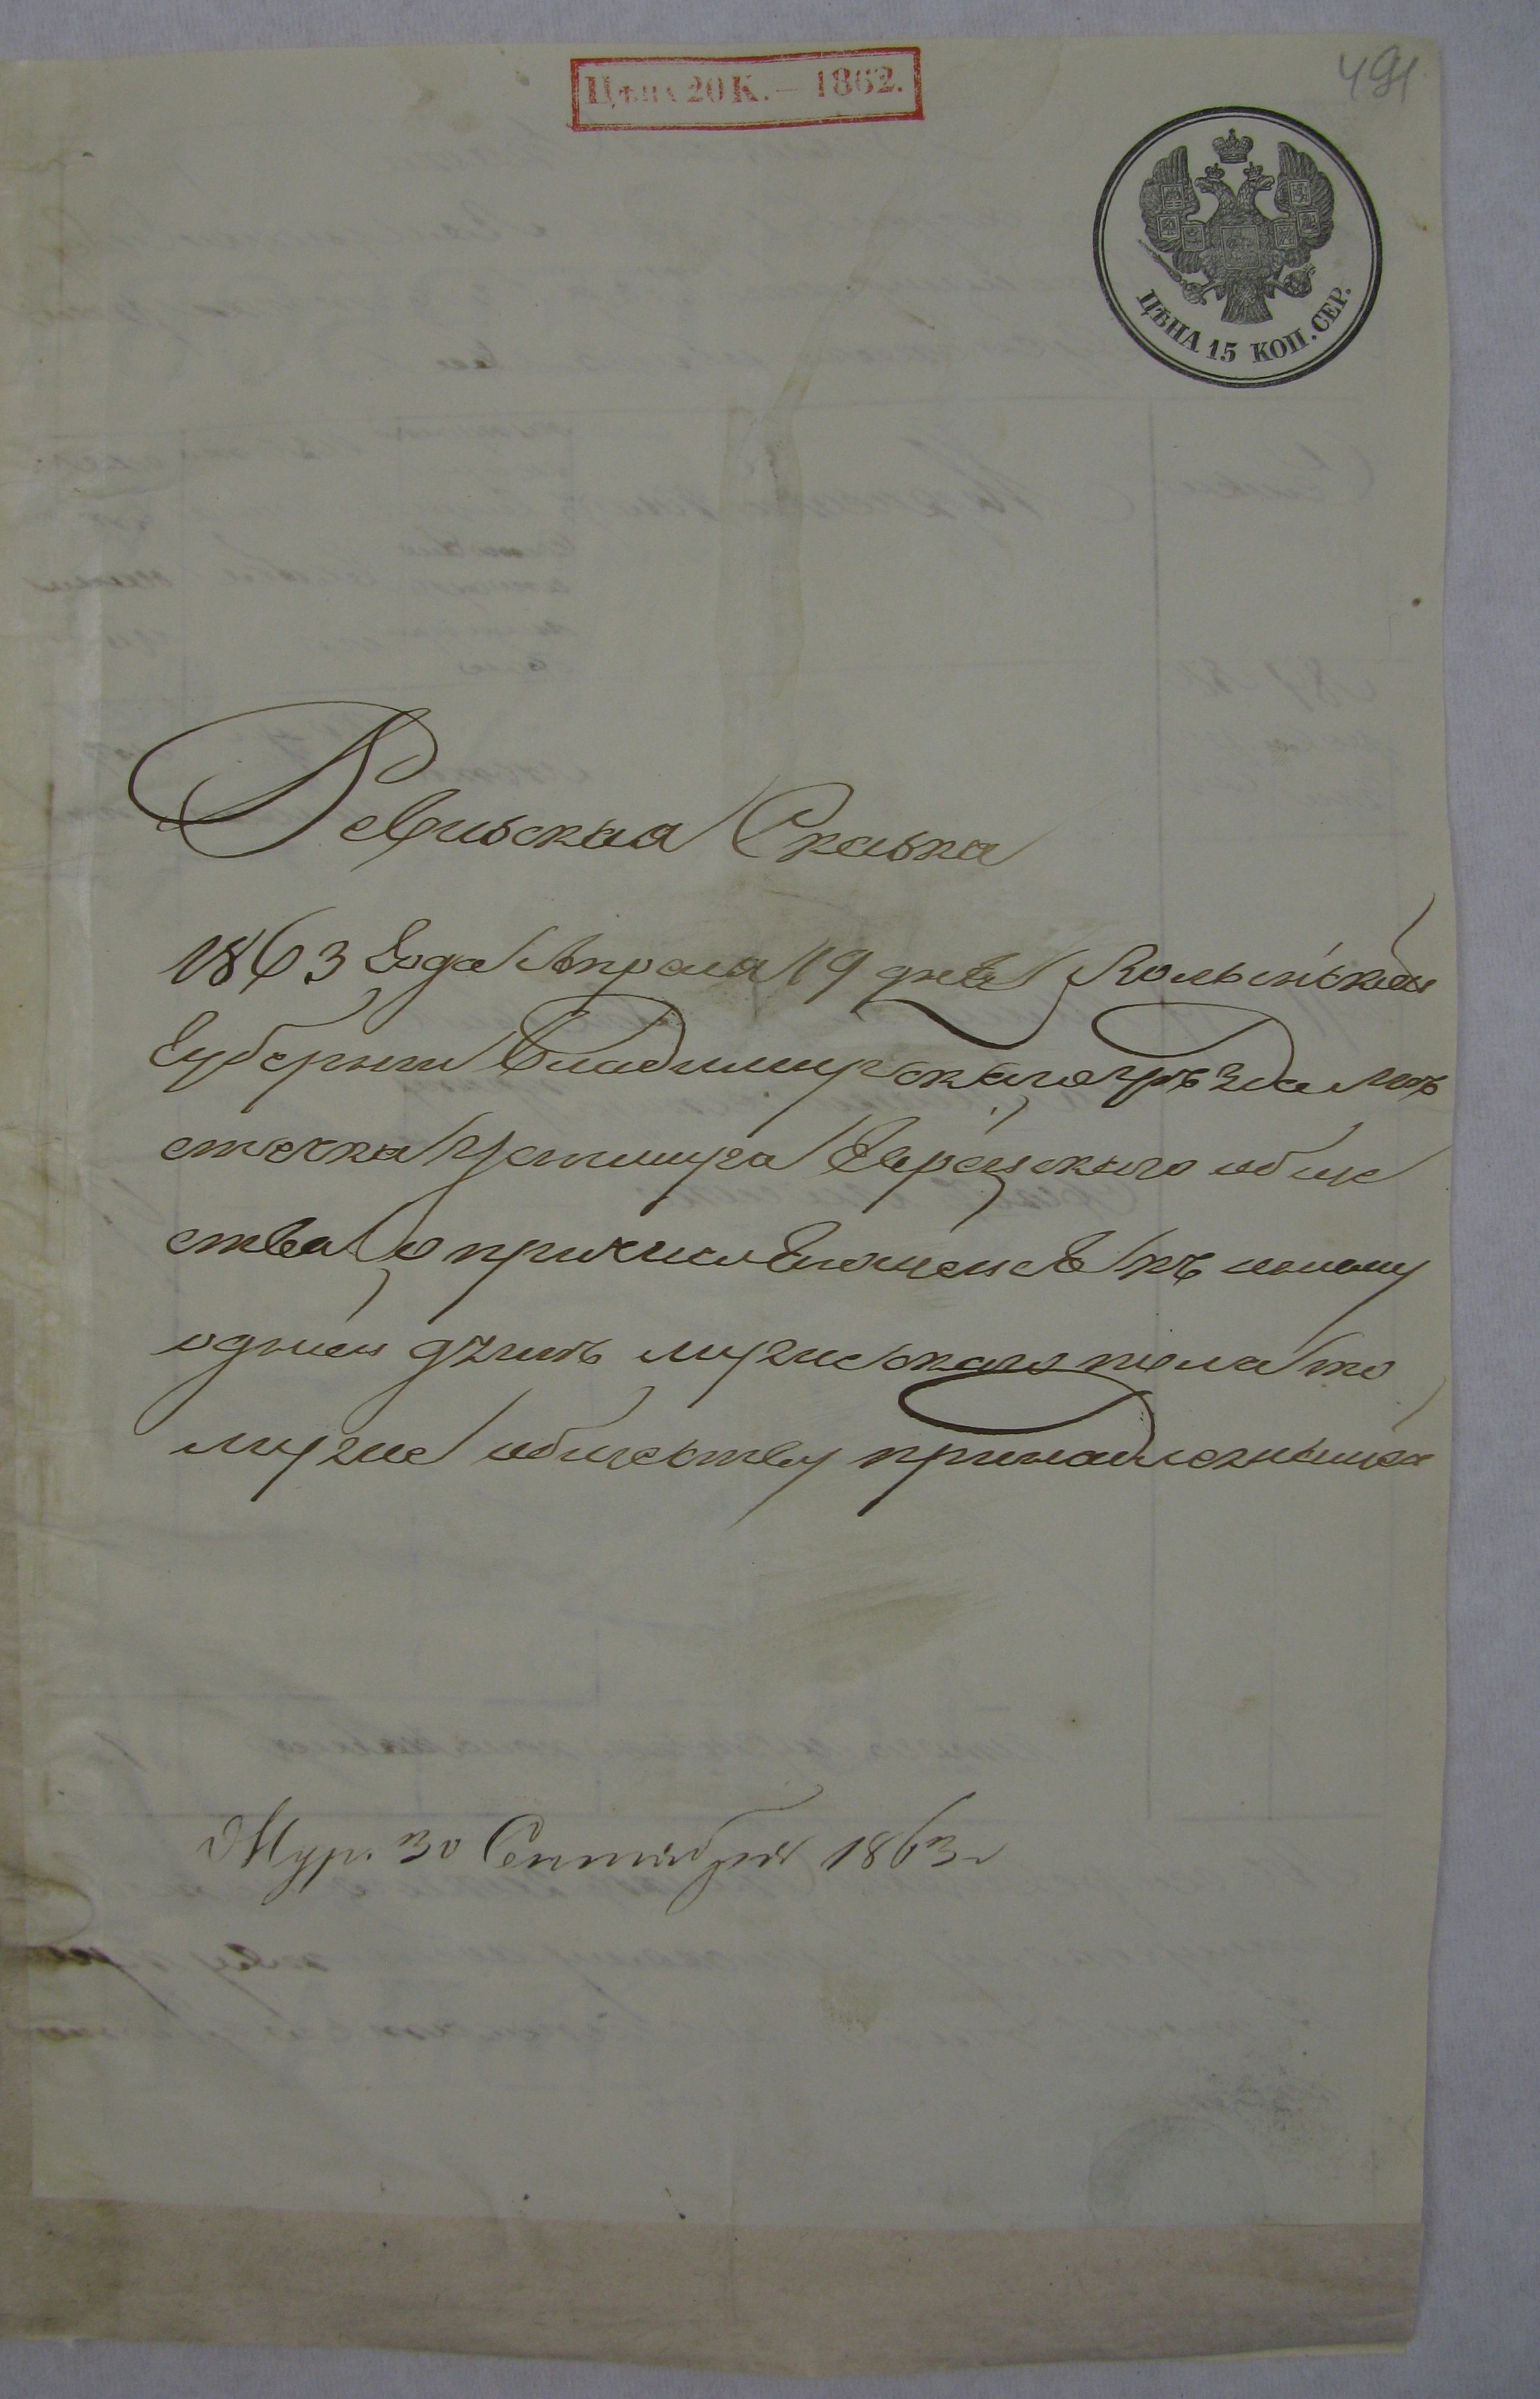 491
Цѣна 20 К. — 1862.
ЦѢНА 15 КОП. СЕР.
Ревиская Скаска
1863 Года Апреля 19 дня Волынской
Губернии Владимирскаго уѣзда Мѣ
стечка Устилуга Еврейскаго обще
ства о причисляющейся къ оному
одной души мужескаго пола то
муже обществу принадлежащей
30 Сентября 1863 г